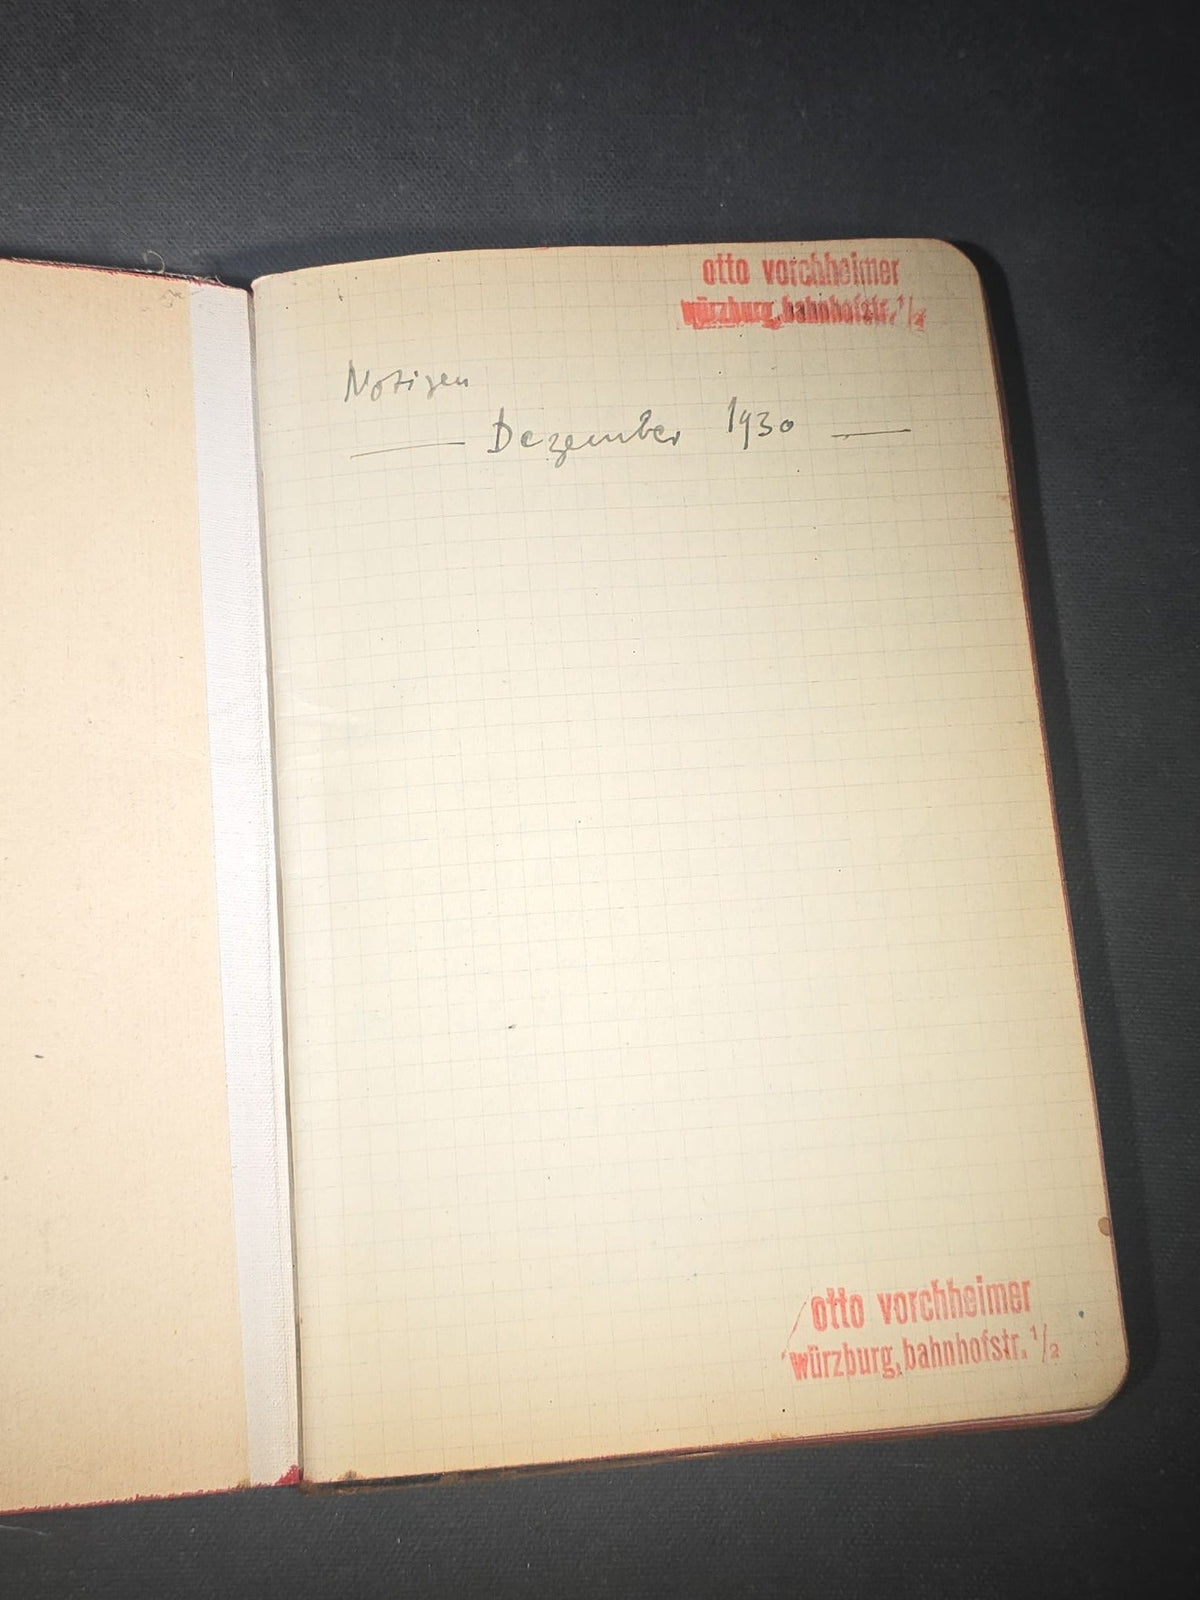 otto vorchheimer
würzburg, bahnhofstr. 1/2
Notizen
Dezember 1930
otto vorchheimer
würzburg, bahnhofstr. 1/2